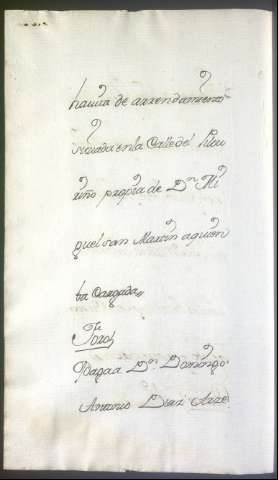 havita de arrendamiento
situada en la Calle del Pilou
uño propria de Dn Mi
guel san Martin a quien
ba Cargada,,
Fs 202
Papa a Dn Domingo
Antonio Diaz Arze